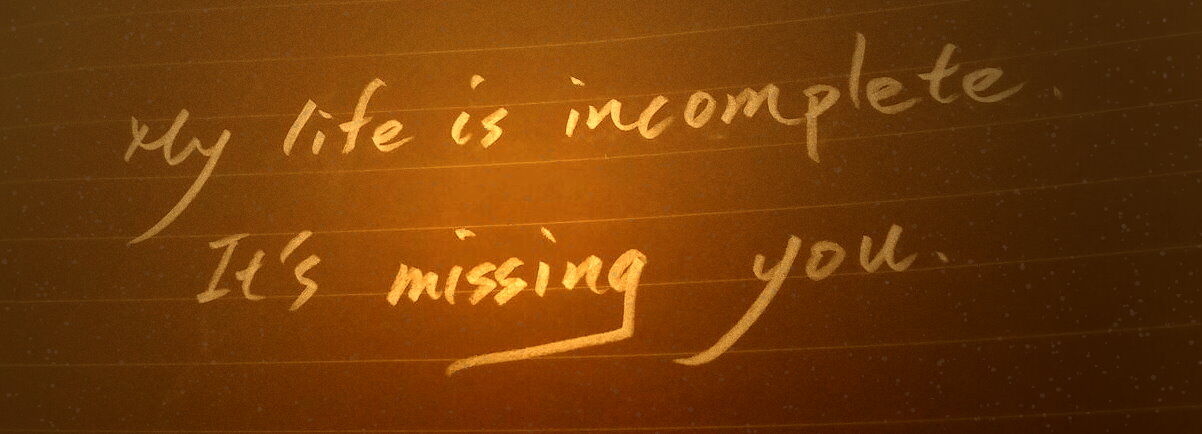 My life is incomplete.
It's missing you.